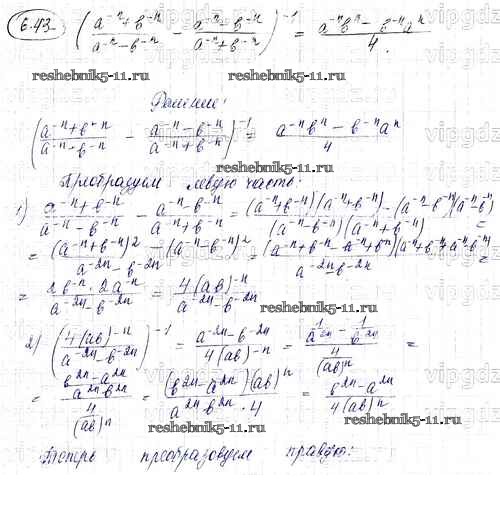 6.43. ((a⁻ⁿ+b⁻ⁿ)/(a⁻ⁿ−b⁻ⁿ) − (a⁻ⁿ−b⁻ⁿ)/(a⁻ⁿ+b⁻ⁿ))⁻¹ = (a⁻ⁿbⁿ−b⁻ⁿaⁿ)/4.
reshebnik5-11.ru reshebnik5-11.ru
Решение:
((a⁻ⁿ+b⁻ⁿ)/(a⁻ⁿ−b⁻ⁿ) − (a⁻ⁿ−b⁻ⁿ)/(a⁻ⁿ+b⁻ⁿ))⁻¹ = (a⁻ⁿbⁿ−b⁻ⁿaⁿ)/4
reshebnik5-11.ru
Преобразуем левую часть:
1) (a⁻ⁿ+b⁻ⁿ)/(a⁻ⁿ−b⁻ⁿ) − (a⁻ⁿ−b⁻ⁿ)/(a⁻ⁿ+b⁻ⁿ) = ((a⁻ⁿ+b⁻ⁿ)(a⁻ⁿ+b⁻ⁿ)−(a⁻ⁿ−b⁻ⁿ)(a⁻ⁿ−b⁻ⁿ))/((a⁻ⁿ−b⁻ⁿ)(a⁻ⁿ+b⁻ⁿ)) =
= ((a⁻ⁿ+b⁻ⁿ)²−(a⁻ⁿ−b⁻ⁿ)²)/(a⁻²ⁿ−b⁻²ⁿ) = ((a⁻ⁿ+b⁻ⁿ−a⁻ⁿ+b⁻ⁿ)(a⁻ⁿ+b⁻ⁿ+a⁻ⁿ−b⁻ⁿ))/(a⁻²ⁿ−b⁻²ⁿ) =
= (2b⁻ⁿ·2a⁻ⁿ)/(a⁻²ⁿ−b⁻²ⁿ) = 4(ab)⁻ⁿ/(a⁻²ⁿ−b⁻²ⁿ)
reshebnik5-11.ru
2) (4(ab)⁻ⁿ/(a⁻²ⁿ−b⁻²ⁿ))⁻¹ = (a⁻²ⁿ−b⁻²ⁿ)/(4(ab)⁻ⁿ) = (1/a²ⁿ − 1/b²ⁿ)/(4/(ab)ⁿ) =
= ((b²ⁿ−a²ⁿ)/(a²ⁿb²ⁿ))/(4/(ab)ⁿ) = ((b²ⁿ−a²ⁿ)(ab)ⁿ)/(a²ⁿb²ⁿ·4) = (b²ⁿ−a²ⁿ)/(4(ab)ⁿ)
reshebnik5-11.ru
Теперь преобразовуем правую:
reshebnik5-11.ru